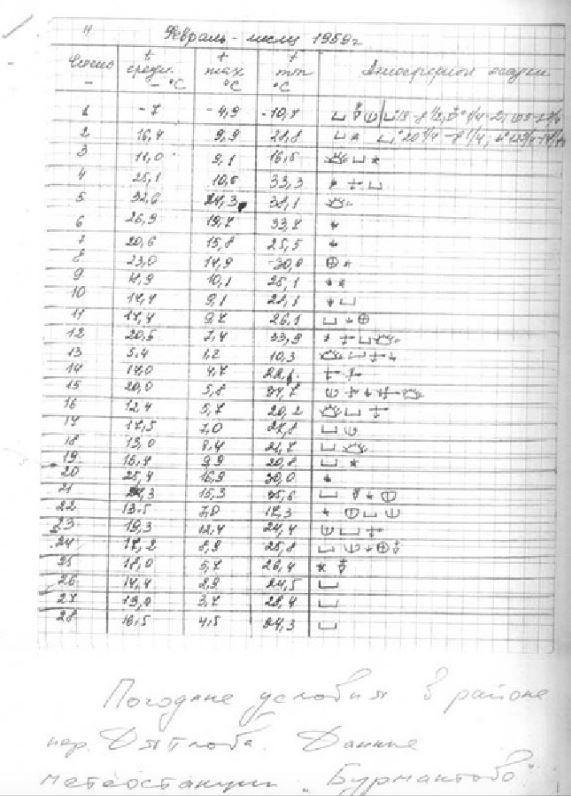 Февраль - месяц 1959 г
Число t средн. t max t min Атмосферной осадки
- - °C °C °C
1 -7 -4,9 -10,7
2 16,4 9,9 28,8
3 11,0 9,1 16,5
4 25,1 10,5 33,3
5 32,6 21,3 38,1
6 26,9 19,7 33,7
7 20,6 15,8 25,5
8 23,0 14,9 -30,0
9 10,1 25,1
10 9,1
11 17,4 9,7 26,1
12 20,5 7,4 33,9
13 5,4 1,2 10,3
14 17,0 4,7
15 20,0 5,8
16 12,4 5,7 20,2
17 17,5 7,0 27,8
18 13,0 8,4 21,7
19 16,7 9,9 20,8
20 25,4 16,9 30,0
21 15,3 35,6
22 13,5 7,0 17,3
23 19,3 12,4 24,4
24 17,2 8,9 25,8
25 18,0 5,7 26,4
26 14,4 2,9 24,5
27 19,0 3,7 28,4
28 16,5 4,5 24,3
Погодные условия в районе
пер. Дятлова. Данные
метеостанции „Бурмантово"